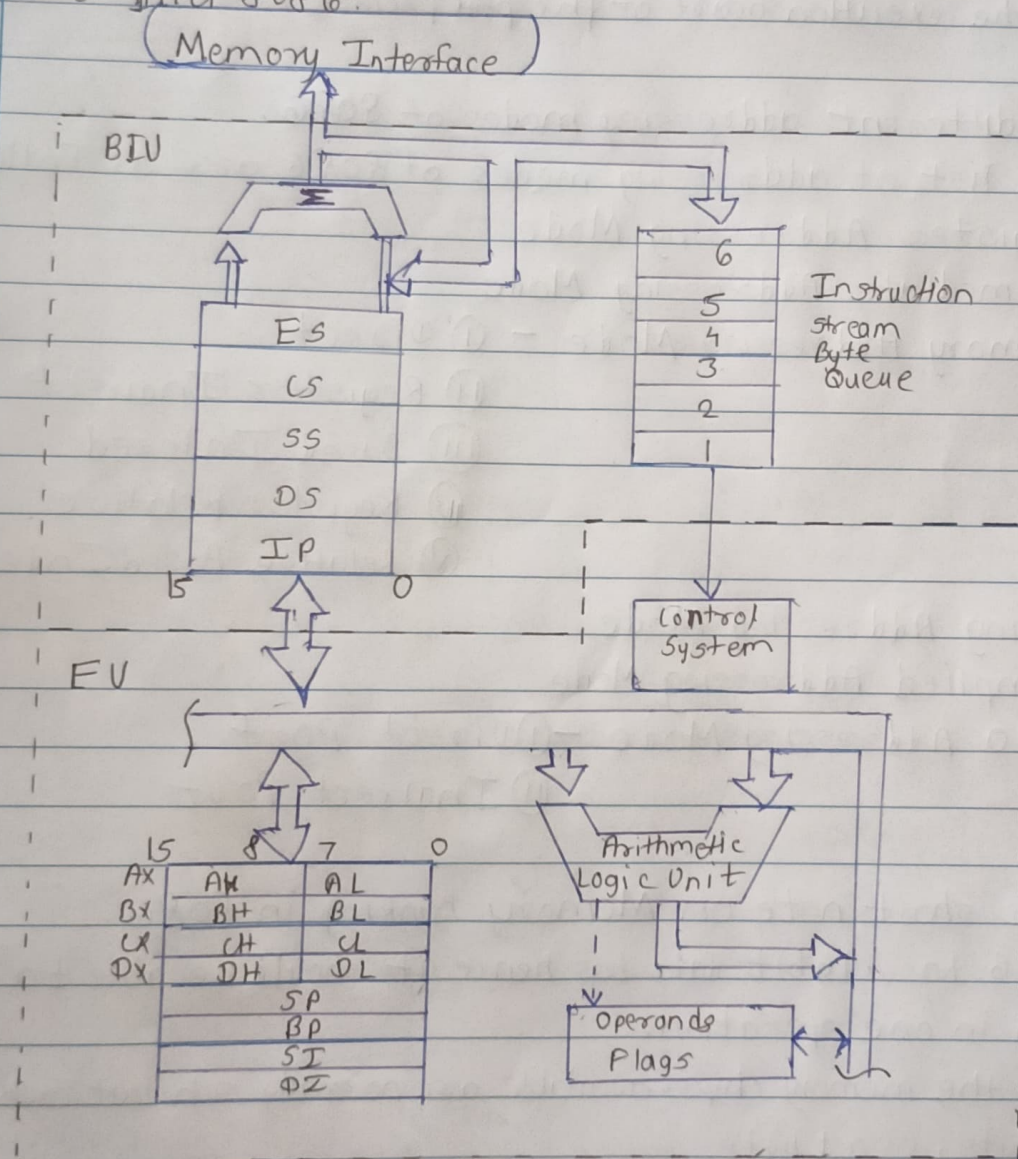 Memory Interface
BIU
Σ
6
5
4
3
2
1
Instruction
stream
Byte
Queue
ES
CS
SS
DS
IP
15 0
Control
System
EU
15 8 7 0
AX AH AL
BX BH BL
CX CH CL
DX DH DL
SP
BP
SI
DI
Arithmetic
Logic Unit
Operands
Flags